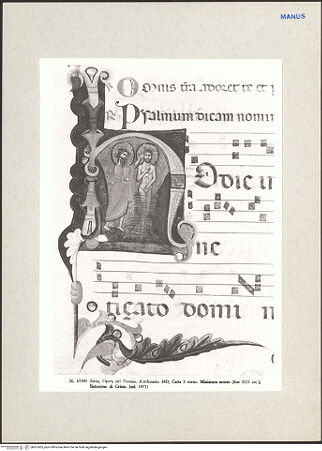 MANUS
Omnis tr̃a adoret te et
Psalmum dicam nomi
odie in
ne
tizato domi n
AL. 65980 Siena, Opera del Duomo. Antifonario 34D, Carta 3 verso. Miniatura senese (fine XIII sec.),
Battesimo di Cristo. (nd. 1477)